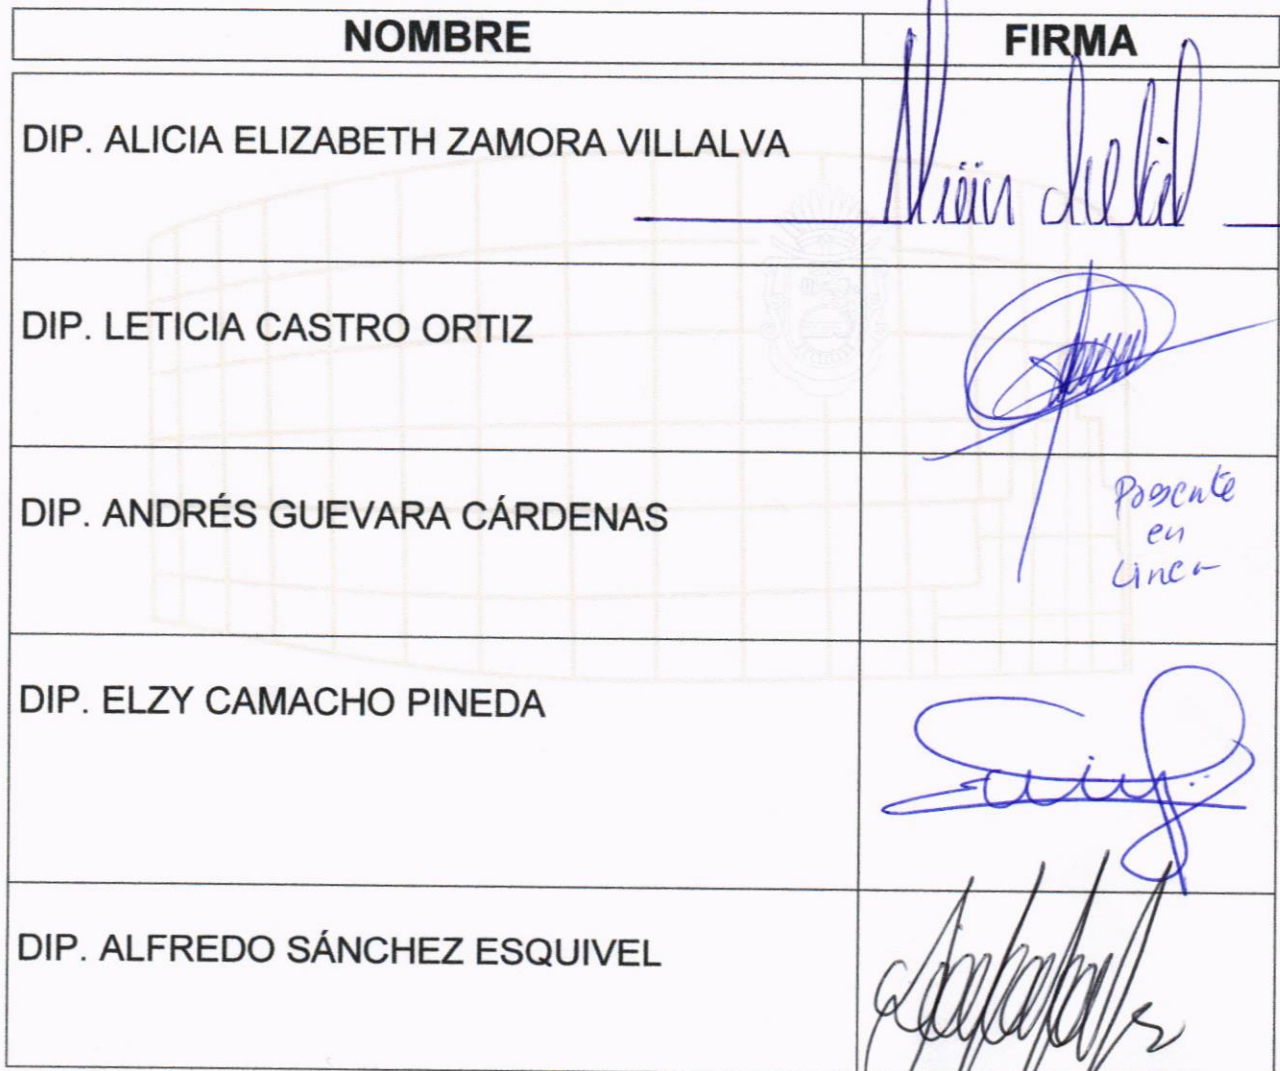 NOMBRE FIRMA
DIP. ALICIA ELIZABETH ZAMORA VILLALVA
DIP. LETICIA CASTRO ORTIZ
DIP. ANDRÉS GUEVARA CÁRDENAS
Presente
en
Linea
DIP. ELZY CAMACHO PINEDA
DIP. ALFREDO SÁNCHEZ ESQUIVEL